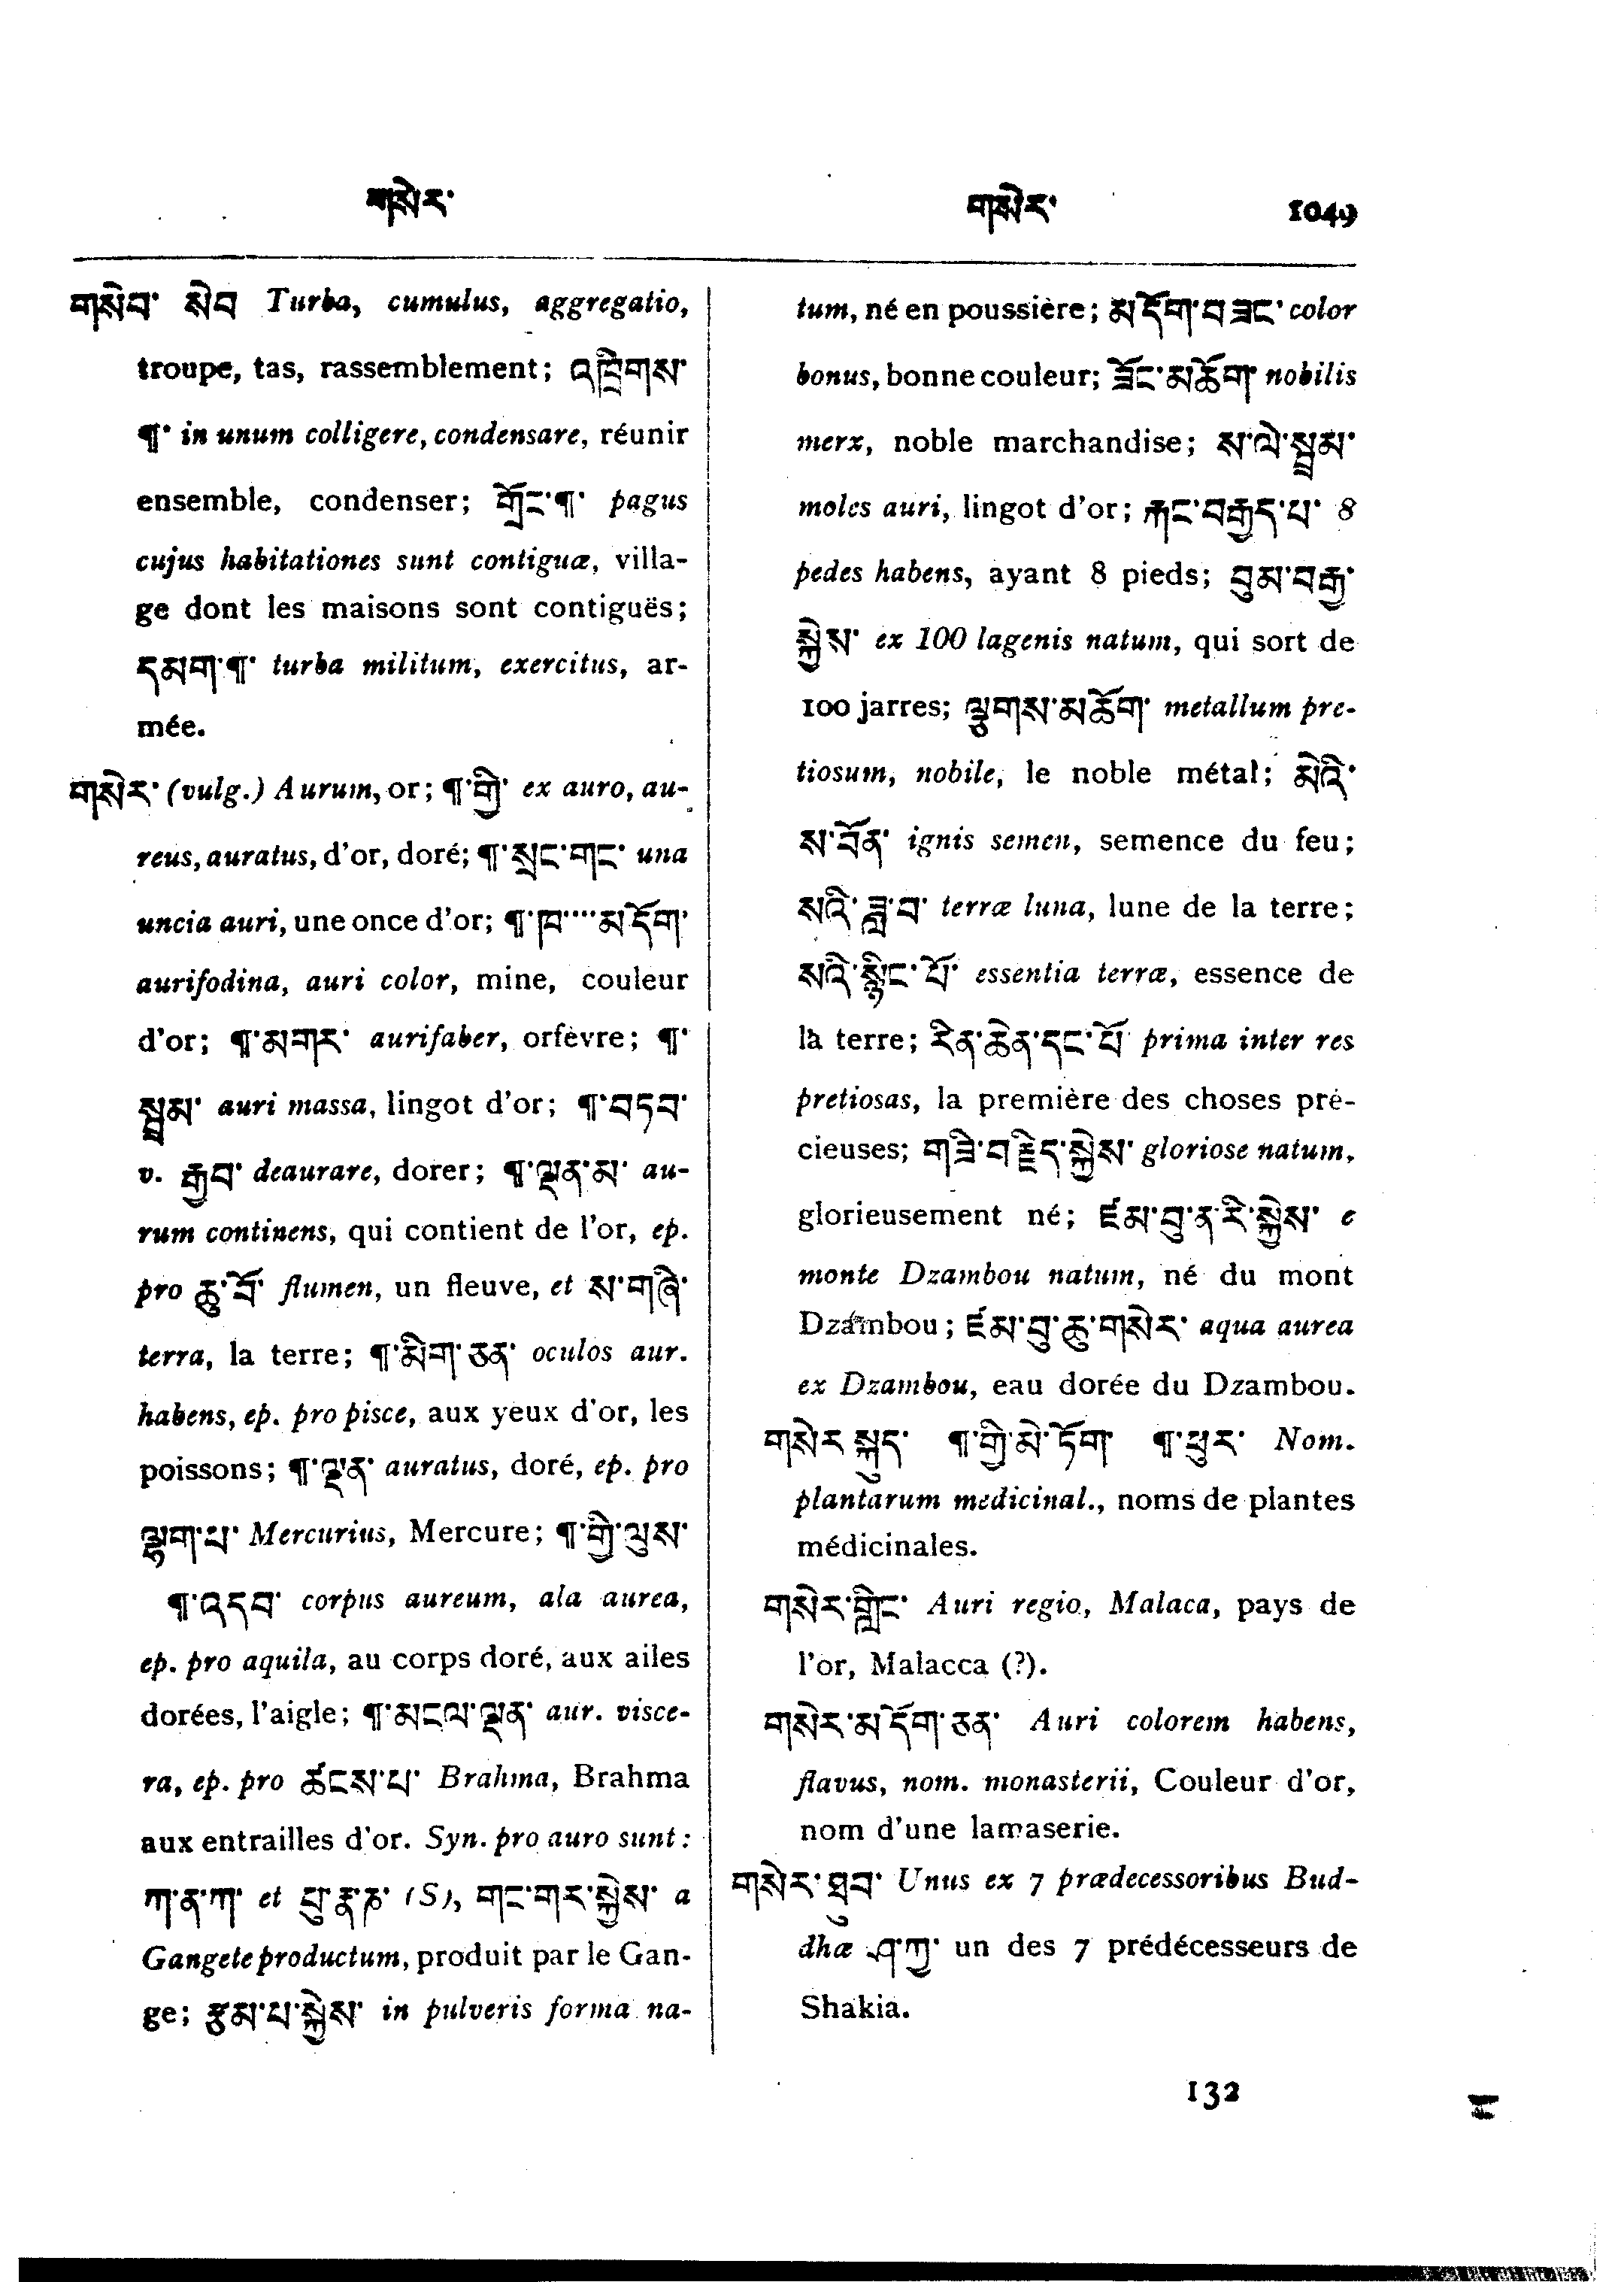 གསེར་ གསེར་ 1049
གསེབ་ སེབ Turba, cumulus, aggregatio,
troupe, tas, rassemblement; འཁྲིགས་
¶་ in unum colligere, condensare, réunir
ensemble, condenser; གྲོང་¶་ pagus
cujus habitationes sunt contiguæ, villa-
ge dont les maisons sont contiguës;
དམག་¶་ turba militum, exercitus, ar-
mée.
གསེར་ (vulg.) Aurum, or; ¶་གྱི་ ex auro, au-
reus, auratus, d'or, doré; ¶་སྲང་གང་ una
uncia auri, une once d'or; ¶་ཁ་...མདོག་
aurifodina, auri color, mine, couleur
d'or; ¶་མགར་ aurifaber, orfèvre; ¶་
སྦྲམ་ auri massa, lingot d'or; ¶་བཏབ་
v. རྒྱབ་ deaurare, dorer; ¶་ལྡན་མ་ au-
rum continens, qui contient de l'or, ep.
pro ཆུ་བོ་ flumen, un fleuve, et ས་གཞི་
terra, la terre; ¶་མིག་ཅན་ oculos aur.
habens, ep. pro pisce, aux yeux d'or, les
poissons; ¶་ལྡན་ auratus, doré, ep. pro
ལྷག་པ་ Mercurius, Mercure; ¶་གྱི་ལུས་
¶་འདབ་ corpus aureum, ala aurea,
ep. pro aquila, au corps doré, aux ailes
dorées, l'aigle; ¶་མངལ་ལྡན་ aur. visce-
ra, ep. pro ཚངས་པ་ Brahma, Brahma
aux entrailles d'or. Syn. pro auro sunt:
ཀ་ན་ཀ་ et པུ་རྣ་ཎ་ (S), གང་གར་སྐྱེས་ a
Gangete productum, produit par le Gan-
ge; རྩམ་པ་སྐྱེས་ in pulveris forma na-
tum, né en poussière; མདོག་བཟང་ color
bonus, bonne couleur; ཟོང་མཆོག་ nobilis
merx, noble marchandise; ས་ལེ་སྦྲམ་
moles auri, lingot d'or; རྐང་བརྒྱད་པ་ 8
pedes habens, ayant 8 pieds; བུམ་བརྒྱ་
སྐྱེས་ ex 100 lagenis natum, qui sort de
100 jarres; ལྕགས་མཆོག་ metallum pre-
tiosum, nobile, le noble métal; མེའི་
ས་བོན་ ignis semen, semence du feu;
སའི་ཟླ་བ་ terræ luna, lune de la terre;
སའི་སྙིང་པོ་ essentia terræ, essence de
la terre; རིན་ཆེན་དང་པོ་ prima inter res
pretiosas, la première des choses pré-
cieuses; གཟི་བརྗིད་སྐྱེས་ gloriose natum,
glorieusement né; ཛམ་བུ་ན་རི་སྐྱེས་ e
monte Dzambou natum, né du mont
Dzambou; ཛམ་བུ་ཆུ་གསེར་ aqua aurea
ex Dzambou, eau dorée du Dzambou.
གསེར་སྐུད་ ¶་གྱི་མེ་ཏོག་ ¶་ཕུར་ Nom.
plantarum medicinal., noms de plantes
médicinales.
གསེར་གླིང་ Auri regio, Malaca, pays de
l'or, Malacca (?).
གསེར་མདོག་ཅན་ Auri colorem habens,
flavus, nom. monasterii, Couleur d'or,
nom d'une lamaserie.
གསེར་ཐུབ་ Unus ex 7 prædecessoribus Bud-
dhæ ཤ་ཀྱ་ un des 7 prédécesseurs de
Shakia.
132